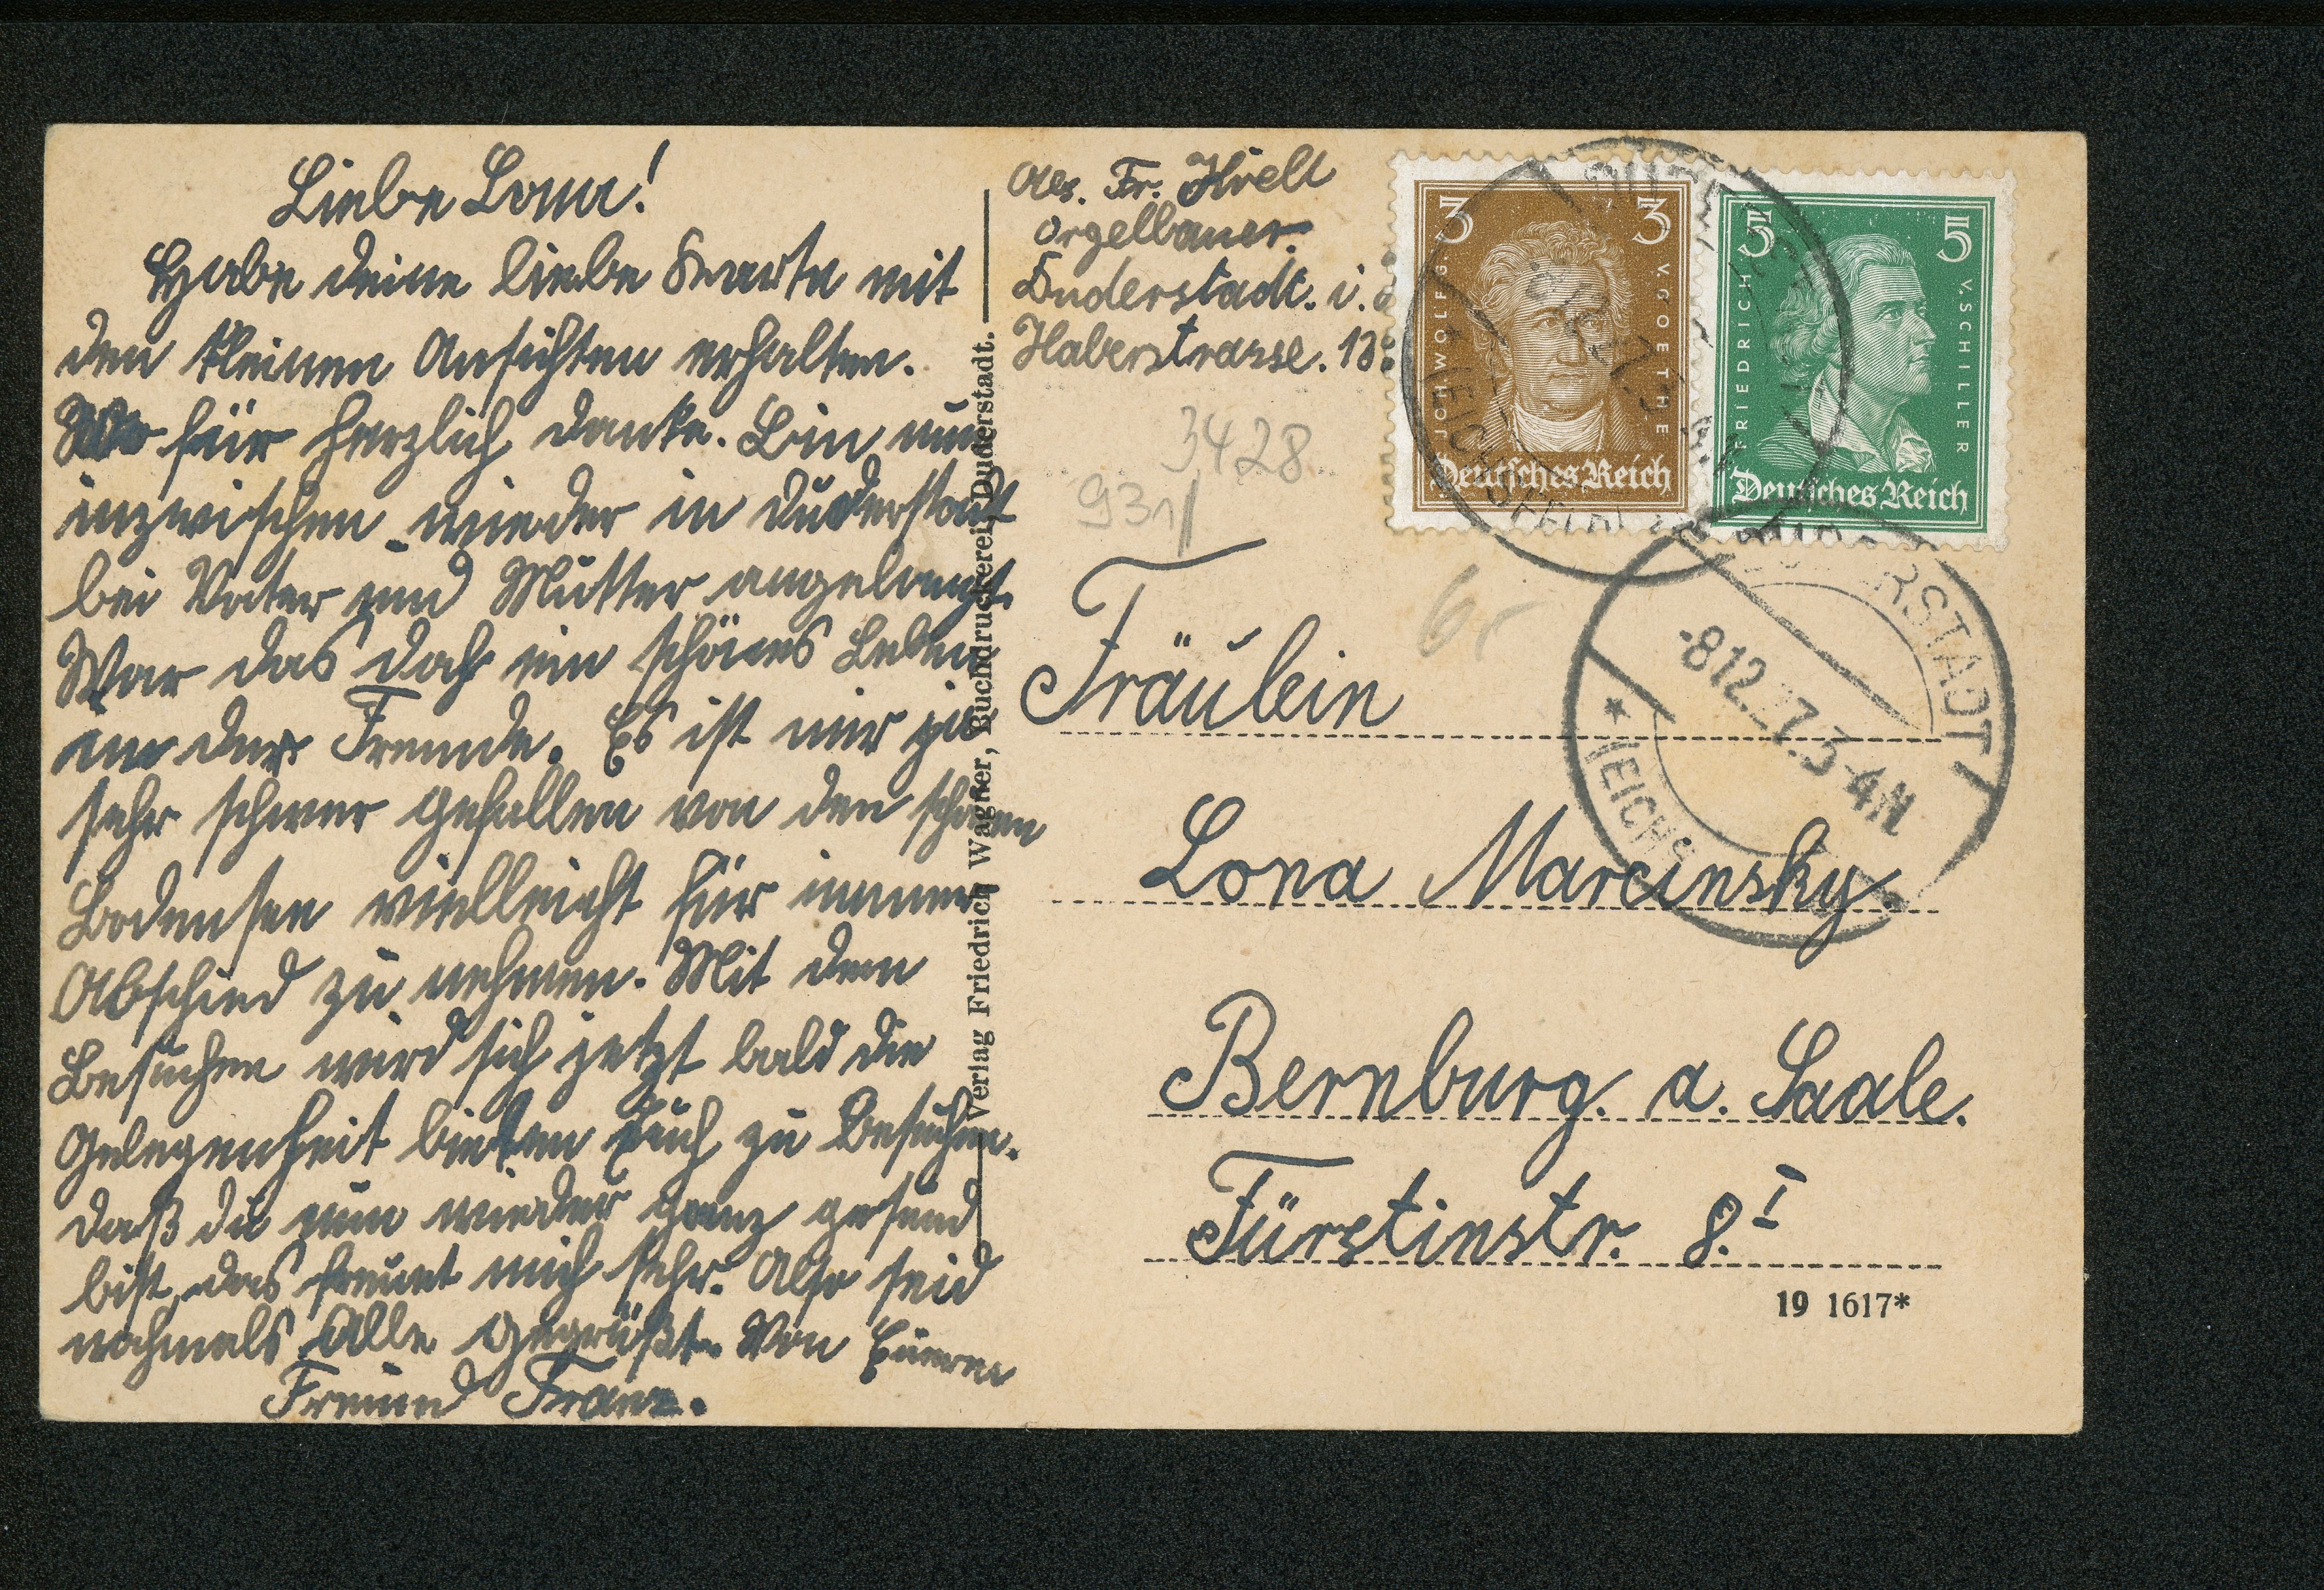 Liebe Lona!
Habe deine liebe Kaarte mit
den kleinen Ansichten erhalten.
für herzlich danke. Bin nun
inzwischen wieder in Duderstadt
bei Vater und Mutter angelangt.
War das doch ein schönes Leben
in der Fremde. Es ist mir ja
sehr schwer gefallen von den schönen
Bodensee vielleicht für immer
Abschied zu nehmen. Mit dem
Besuchen wird sich jetzt bald die
Gelegenheit bieten Euch zu Besuchen.
Daß du nun wieder ganz gesund
bist, das freuet mich sehr. Also seid
nochmals Alle Gegrüßt. Von Eueren
Freund Franz.
Verlag Friedrich Wagner, Buchdruckerei, Duderstadt.
Abs. Fr.
Orgelbauer.
Duderstadt. i.
Haberstrasse. 13
3428
931
6,-
3 3
JOH. WOLFG. V. GOETHE
Deutsches Reich
5 5
FRIEDRICH V. SCHILLER
Deutsches Reich
DUDERSTADT
-8.12.27.3-4N
* (EICHSFELD)
Fräulein
Lona Marcinsky.
Bernburg. a. Saale.
Fürstinstr. 8.I
19 1617*